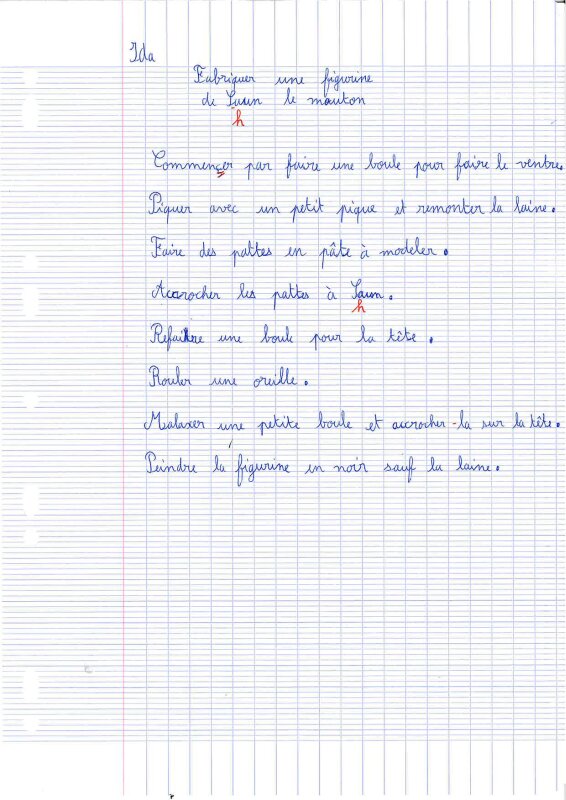 Ida
Fabriquer une figurine
de Saun le mouton
h
Commençer par faire une boule pour faire le ventre.
Piquer avec un petit pique et remonter la laine.
Faire des pattes en pâte à modeler.
Accrocher les pattes à Saun.
h
Refaire une boule pour la tête.
Rouler une oreille.
Malaxer une petite boule et accrocher-la sur la tête.
Peindre la figurine en noir sauf la laine.